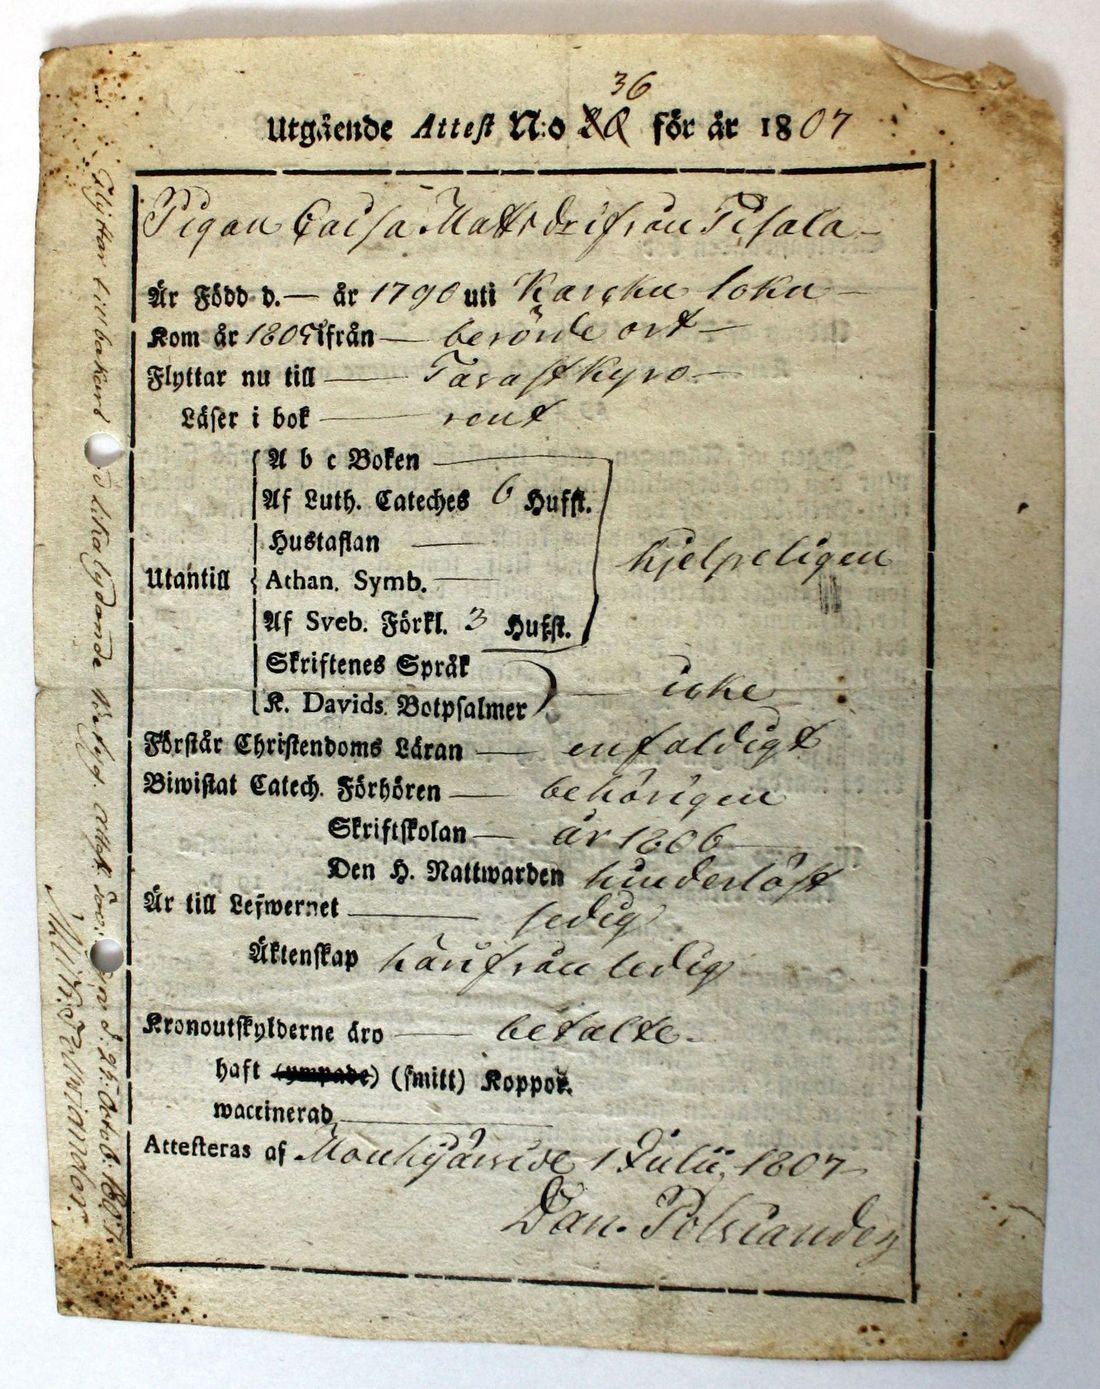 36
Utgående Attest N:o för år 1807
Pigan Caisa Mattsdr ifrån Pisala
Är Född d. — år 1790 uti Karcku Soknu
Kom år 1805 ifrån — berörde ort —
Flyttar nu till — Tavastkyro —
Läser i bok — rent
A b c Boken —
Af Luth. Cateches 6 Hufst.
Hustaflan —
hjelpeligen
Utantill Athan. Symb. —
Af Sveb. Förkl. 3 Hufst.
Skriftenes Språk
icke
K. Davids Botpsalmer
Förstår Christendoms Läran — enfaldigt
Biwistat Catech. Förhören — behörigen
Skriftskolan — år 1806
Den H. Nattwarden hinderlöst
Är till Lefwernet — sedig
Äktenskap härifrån ledig
Kronoutskylderne äro — betalte —
haft (ympade) (smitt) Koppor.
waccinerad
Attesteras af Mouhijärvi d. 1 Julii 1807
Dan. Polviander
Flyttar tillbakars lika lydande Betyg. d. 21. Octob: 1807.